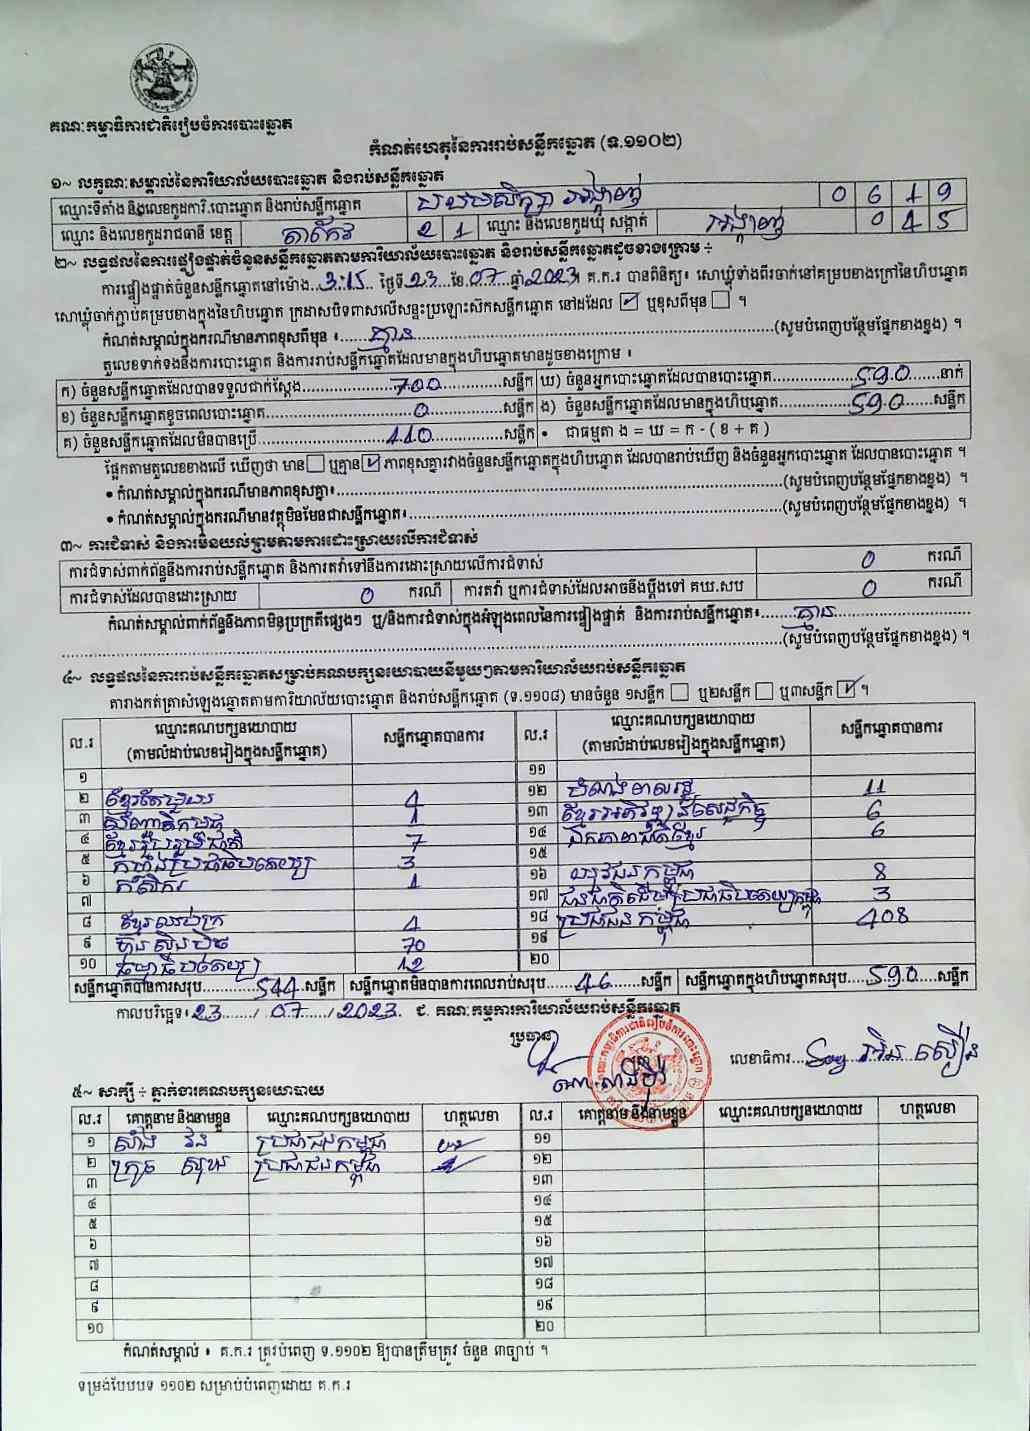 គណៈកម្មាធិការជាតិរៀបចំការបោះឆ្នោត
កំណត់ហេតុនៃការរាប់សន្លឹកឆ្នោត (ទ.១១០២)
១~ លក្ខណៈសម្គាល់នៃការិយាល័យបោះឆ្នោត និងរាប់សន្លឹកឆ្នោត
ឈ្មោះទីតាំង និងលេខកូដការិ.បោះឆ្នោត និងរាប់សន្លឹកឆ្នោត បឋមសិក្សា អង្កាញ់ 0 6 1 9
ឈ្មោះ និងលេខកូដរាជធានី ខេត្ត តាកែវ 2 1 ឈ្មោះ និងលេខកូដឃុំ សង្កាត់ អង្កាញ់ 0 4 5
២~ លទ្ធផលនៃការផ្ទៀងផ្ទាត់ចំនួនសន្លឹកឆ្នោតតាមការិយាល័យបោះឆ្នោត និងរាប់សន្លឹកឆ្នោតដូចខាងក្រោម ÷
ការផ្ទៀងផ្ទាត់ចំនួនសន្លឹកឆ្នោតនៅម៉ោង 3:15 ថ្ងៃទី 23 ខែ 07 ឆ្នាំ 2023។ គ.ក.រ បានពិនិត្យ៖ សោឃ្លុំទាំងពីរចាក់នៅគម្របខាងក្រៅនៃហិបឆ្នោត
សោឃ្លុំចាក់ភ្ជាប់គម្របខាងក្នុងនៃហិបឆ្នោត ក្រដាសបិទពាសលើសន្ទះប្រឡោះស៊កសន្លឹកឆ្នោត នៅដដែល ☑ ឬខុសពីមុន ☐ ។
កំណត់សម្គាល់ក្នុងករណីមានភាពខុសពីមុន ៖ គ្មាន (សូមបំពេញបន្ថែមផ្នែកខាងខ្នង) ។
តួលេខទាក់ទងនឹងការបោះឆ្នោត និងការរាប់សន្លឹកឆ្នោតដែលមានក្នុងហិបឆ្នោតមានដូចខាងក្រោម ៖
ក) ចំនួនសន្លឹកឆ្នោតដែលបានទទួលជាក់ស្តែង 700 សន្លឹក ឃ) ចំនួនអ្នកបោះឆ្នោតដែលបានបោះឆ្នោត 590 នាក់
ខ) ចំនួនសន្លឹកឆ្នោតខូចពេលបោះឆ្នោត 0 សន្លឹក ង) ចំនួនសន្លឹកឆ្នោតដែលមានក្នុងហិបឆ្នោត 590 សន្លឹក
គ) ចំនួនសន្លឹកឆ្នោតដែលមិនបានប្រើ 110 សន្លឹក • ជាធម្មតា ង = ឃ = ក - ( ខ + គ )
ផ្អែកតាមតួលេខខាងលើ ឃើញថា មាន ☐ ឬគ្មាន ☑ ភាពខុសគ្នារវាងចំនួនសន្លឹកឆ្នោតក្នុងហិបឆ្នោត ដែលបានរាប់ឃើញ និងចំនួនអ្នកបោះឆ្នោត ដែលបានបោះឆ្នោត ។
• កំណត់សម្គាល់ក្នុងករណីមានភាពខុសគ្នា៖ (សូមបំពេញបន្ថែមផ្នែកខាងខ្នង) ។
• កំណត់សម្គាល់ក្នុងករណីមានវត្ថុមិនមែនជាសន្លឹកឆ្នោត៖ (សូមបំពេញបន្ថែមផ្នែកខាងខ្នង) ។
៣~ ការជំទាស់ និងការមិនយល់ព្រមតាមការដោះស្រាយលើការជំទាស់
ការជំទាស់ពាក់ព័ន្ធនឹងការរាប់សន្លឹកឆ្នោត និងការតវ៉ាទៅនឹងការដោះស្រាយលើការជំទាស់ 0 ករណី
ការជំទាស់ដែលបានដោះស្រាយ 0 ករណី ការតវ៉ា ឬការជំទាស់ដែលអាចនឹងប្តឹងទៅ គឃ.សប 0 ករណី
កំណត់សម្គាល់ពាក់ព័ន្ធនឹងភាពមិនប្រក្រតីផ្សេងៗ ឬ/និងការជំទាស់ក្នុងអំឡុងពេលនៃការផ្ទៀងផ្ទាត់ និងការរាប់សន្លឹកឆ្នោត៖ គ្មាន
(សូមបំពេញបន្ថែមផ្នែកខាងខ្នង) ។
៤~ លទ្ធផលនៃការរាប់សន្លឹកឆ្នោតសម្រាប់គណបក្សនយោបាយនីមួយៗតាមការិយាល័យរាប់សន្លឹកឆ្នោត
តារាងកត់ត្រាសំឡេងឆ្នោតតាមការិយាល័យបោះឆ្នោត និងរាប់សន្លឹកឆ្នោត (ទ.១១០៨) មានចំនួន ១សន្លឹក ☐ ឬ២សន្លឹក ☐ ឬ៣សន្លឹក ☑ ។
ល.រ ឈ្មោះគណបក្សនយោបាយ (តាមលំដាប់លេខរៀងក្នុងសន្លឹកឆ្នោត) សន្លឹកឆ្នោតបានការ ល.រ ឈ្មោះគណបក្សនយោបាយ (តាមលំដាប់លេខរៀងក្នុងសន្លឹកឆ្នោត) សន្លឹកឆ្នោតបានការ
១ ១១
២ ខ្មែរតែមួយ 4 ១២ សំណង់មាលរដ្ឋ 11
៣ 1 ១៣ ខ្មែរអភិវឌ្ឍន៍សេដ្ឋកិច្ច 6
៤ ខ្មែររួបរួមជាតិ 7 ១៤ ឯកភាពជាតិខ្មែរ 6
៥ កម្លាំងប្រជាធិបតេយ្យ 3 ១៥
៦ កសិករ 1 ១៦ យុវជនកម្ពុជា 8
៧ ១៧ ជនជាតិដើមប្រជាធិបតេយ្យកម្ពុជា 3
៨ ខ្មែរឈប់ក្រ 4 ១៨ ប្រជាជនកម្ពុជា 408
៩ ហ្វ៊ុនស៊ិនប៉ិច 70 ១៩
១០ ធម្មាធិបតេយ្យ 12 ២០
សន្លឹកឆ្នោតបានការសរុប 544 សន្លឹក សន្លឹកឆ្នោតមិនបានការពេលរាប់សរុប 46 សន្លឹក សន្លឹកឆ្នោតក្នុងហិបឆ្នោតសរុប 590 សន្លឹក
កាលបរិច្ឆេទ៖ 23 / 07 / 2023 ជ. គណៈកម្មការការិយាល័យរាប់សន្លឹកឆ្នោត
ប្រធាន
លេខាធិការ អិន សឿន
៥~ សាក្សី ÷ ភ្នាក់ងារគណបក្សនយោបាយ
ល.រ គោត្តនាម និងនាមខ្លួន ឈ្មោះគណបក្សនយោបាយ ហត្ថលេខា ល.រ គោត្តនាម និងនាមខ្លួន ឈ្មោះគណបក្សនយោបាយ ហត្ថលេខា
១ សាំង វ៉ន ប្រជាជនកម្ពុជា ១១
២ ប្រជាជនកម្ពុជា ១២
៣ ១៣
៤ ១៤
៥ ១៥
៦ ១៦
៧ ១៧
៨ ១៨
៩ ១៩
១០ ២០
កំណត់សម្គាល់ ៖ គ.ក.រ ត្រូវបំពេញ ទ.១១០២ ឱ្យបានត្រឹមត្រូវ ចំនួន ៣ច្បាប់ ។
ទម្រង់បែបបទ ១១០២ សម្រាប់បំពេញដោយ គ.ក.រ